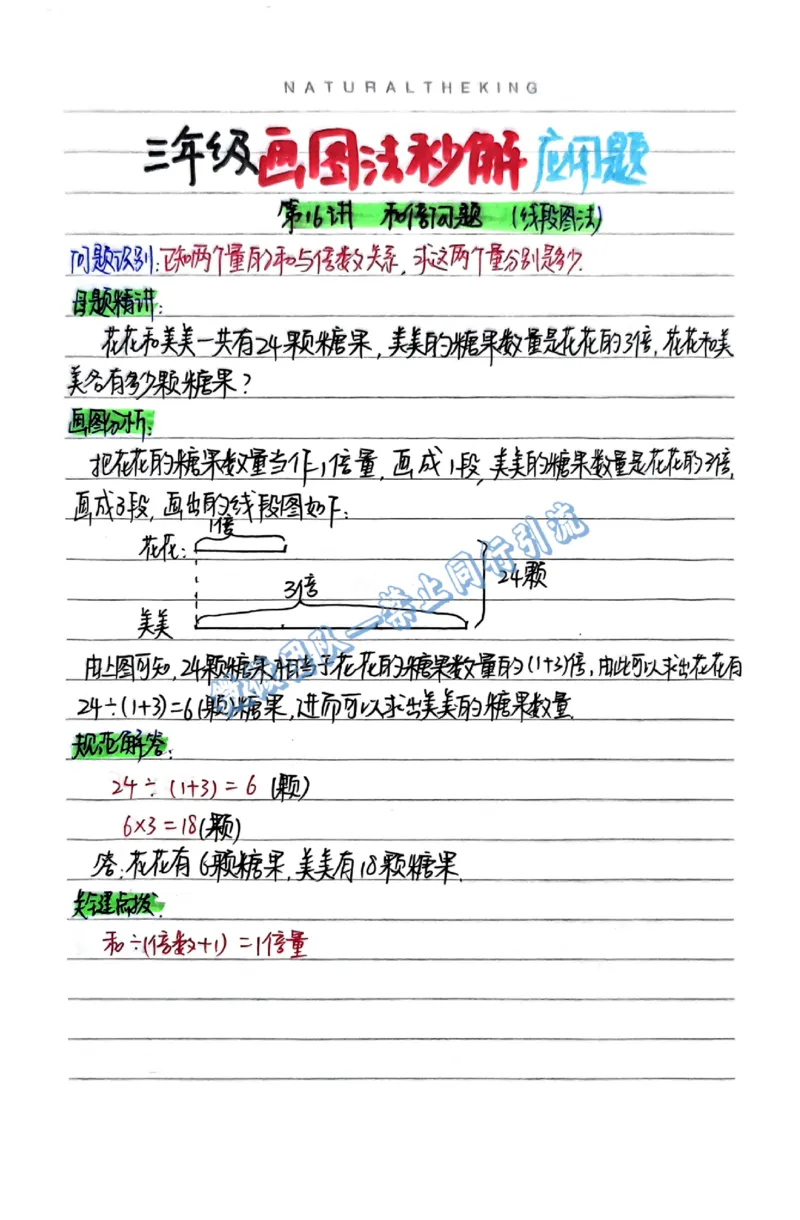 NATURALTHEKING
三年级画图法秒解应用题
第16讲 和倍问题 (线段图法)
问题识别:已知两个量的和与倍数关系,求这两个量分别是多少.
母题精讲:
花花和美美一共有24颗糖果,美美的糖果数量是花花的3倍,花花和美
美各有多少颗糖果?
画图分析:
把花花的糖果数量当作1倍量,画成1段,美美的糖果数量是花花的3倍,
画成3段,画出的线段图如下:
1倍
花花:
3倍
24颗
美美
由上图可知,24颗糖果相当于花花的糖果数量的(1+3)倍,由此可以求出花花有
24÷(1+3)=6(颗)糖果,进而可以求出美美的糖果数量.
规范解答:
24÷(1+3)=6(颗)
6×3=18(颗)
答:花花有6颗糖果,美美有18颗糖果.
关键点拨:
和÷(倍数+1)=1倍量
团队—禁止同行引流